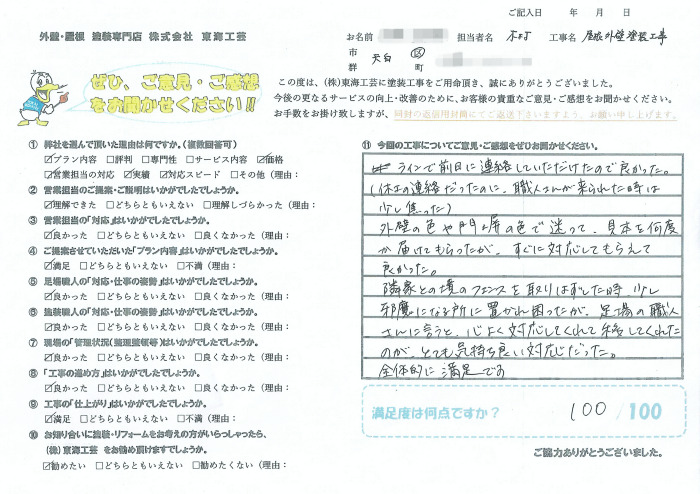 ご記入日　年　月　日
外壁・屋根 塗装専門店 株式会社 東海工芸
お名前 担当者名 木村 工事名 屋根外壁塗装工事
市郡 天白 区町
ぜひ、ご意見・ご感想
をお聞かせください!!
この度は、(株)東海工芸に塗装工事をご用命頂き、誠にありがとうございました。
今後の更なるサービスの向上・改善のために、お客様の貴重なご意見・ご感想をお聞かせください。
お手数をお掛け致しますが、同封の返信用封筒にてご返送下さいますよう、お願い申し上げます。
① 弊社を選んで頂いた理由は何ですか。(複数回答可)
☑プラン内容 □評判 □専門性 □サービス内容 ☑価格
☑営業担当の対応 ☑実績 ☑対応スピード □その他（理由：
② 営業担当のご提案・ご説明はいかがでしたでしょうか。
☑理解できた □どちらともいえない □理解しづらかった（理由：
③ 営業担当の「対応」はいかがでしたでしょうか。
☑良かった □どちらともいえない □良くなかった（理由：
④ ご提案させていただいた「プラン内容」はいかがでしたでしょうか。
☑満足 □どちらともいえない □不満（理由：
⑤ 足場職人の「対応・仕事の姿勢」はいかがでしたでしょうか。
☑良かった □どちらともいえない □良くなかった（理由：
⑥ 塗装職人の「対応・仕事の姿勢」はいかがでしたでしょうか。
☑良かった □どちらともいえない □良くなかった（理由：
⑦ 現場の「管理状況(整理整頓等)はいかがでしたでしょうか。
☑良かった □どちらともいえない □良くなかった（理由：
⑧ 「工事の進め方」はいかがでしたでしょうか。
☑良かった □どちらともいえない □良くなかった（理由：
⑨ 工事の「仕上がり」はいかがでしたでしょうか。
☑満足 □どちらともいえない □不満（理由：
⑩ お知り合いに塗装・リフォームをお考えの方がいらっしゃったら、
(株) 東海工芸 をお勧め頂けますでしょうか。
☑勧めたい □どちらともいえない □勧めたくない（理由：
⑪ 今回の工事についてご意見・ご感想をぜひお聞かせください。
ラインで前日に連絡していただけたので良かった。
(休みの連絡だったのに、職人さんが来られた時は
少し焦った)
外壁の色や門塀の色で迷って、見本を何度
か届けてもらったが、すぐに対応してもらえて
良かった。
隣家との境のフェンスを取りはずした時、少し
邪魔になる所に置かれ困ったが、足場の職人
さんに言うと、心よく対応してくれて移してくれた
のが、とても気持ち良い対応だった。
全体的に満足です
満足度は何点ですか？ 100 /100
ご協力ありがとうございました。